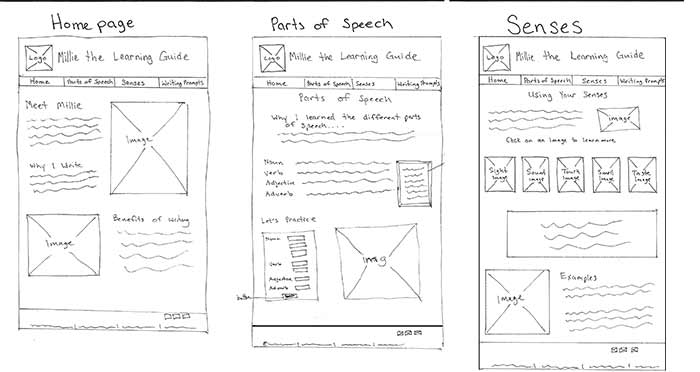 Home page
Logo
Millie the Learning Guide
Home Parts of Speech Senses Writing Prompts
Meet Millie
Image
Why I Write
Benefits of Writing
Image
Parts of Speech
Logo
Millie the Learning Guide
Home Parts of Speech Senses Writing Prompts
Parts of Speech
Why I learned the different parts
of speech....
Noun
Verb
Adjective
Adverb
Let's Practice
Noun
Verb
Adjective
Adverb
button
Imag
Senses
Logo
Millie the Learning Guide
Home Parts of Speech Senses Writing Prompts
Using Your Senses
image
Click on an image to learn more.
Sight
Image
Sound
Image
Touch
Image
Smell
Image
Taste
Image
Image
Examples